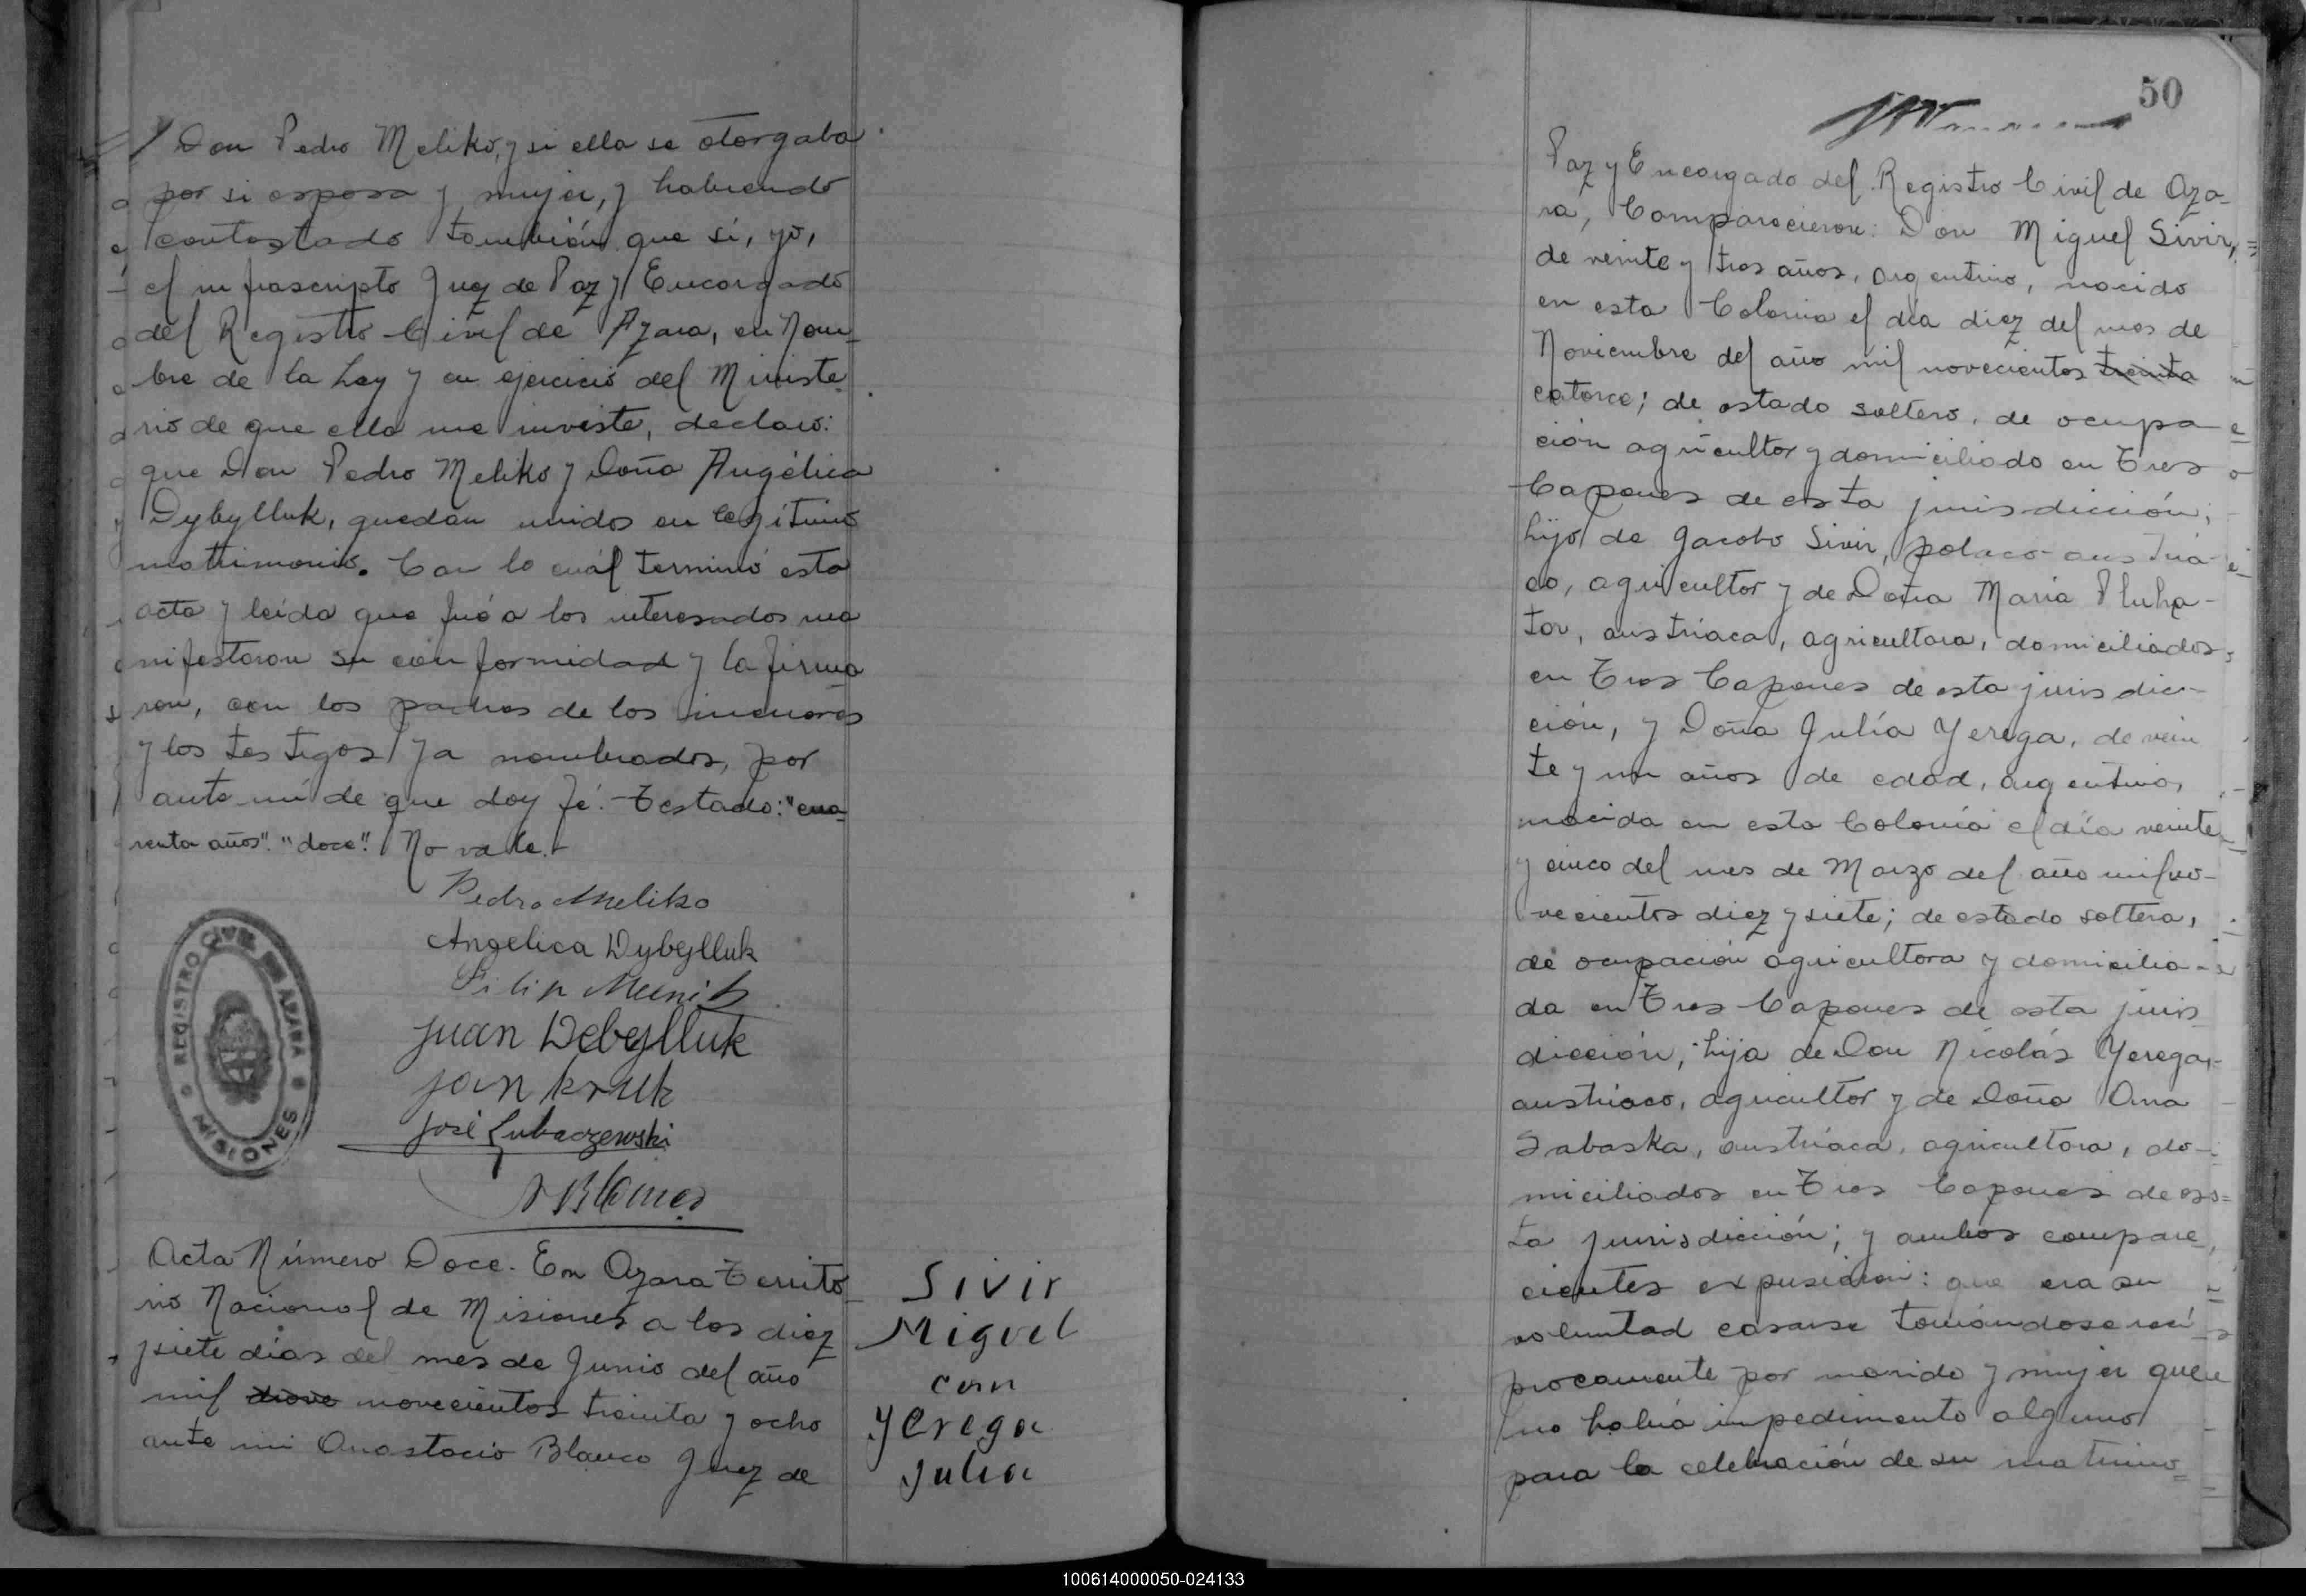 Don Pedro Meliko, y si ella se otorgaba
por si esposa y mujer, y habiendo
contestado también que si, yo,
el infrascripto Juez de Paz y Encargado
del Registro Civil de Azara, en Nom-
bre de la Ley y en ejercicio del Ministe-
rio de que ella me inviste, declaro:
que Don Pedro Meliko y Doña Angélica
Dybylluk, quedan unidos en legítimo
matrimonio. Con lo cuál terminó esta
acta y leída que fué a los interesados ma
nifestaron su conformidad y la firma
ron, con los padres de los menores
y los testigos ya nombrados, por
ante mí de que doy fé. Testado: "cua-
renta años". "doce". No vale.
Pedro Meliko
Angelica Dybylluk
Juan Debylluk
Jan Kruk
José Lubaczewski
REGISTRO CIVIL DE AZARA
MISIONES
Acta Número Doce. En Azara Territo-
rio Nacional de Misiones a los diez
y siete días del mes de Junio del año
mil novecientos treinta y ocho
ante mi Anastacio Blanco Juez de
Sivir
Miguel
con
Yerega
Julia
50
Paz y Encargado del Registro Civil de Aza-
ra, Comparecieron: Don Miguel Sivir,
de veinte y tres años, argentino, nacido
en esta Colonia el día diez del mes de
Noviembre del año mil novecientos treinta
catorce; de estado soltero, de ocupa-
ción agricultor y domiciliado en Tres
Capones de esta jurisdicción;
hijo de Jacobo Sivir, polaco-austria-
co, agricultor y de Doña María Pluha-
tor, austríaca, agricultora, domiciliados
en Tres Capones de esta jurisdic-
ción, y Doña Julía Yerega, de vein
te y un años de edad, argentina,
nacida en esta Colonia el día veinte
y cinco del mes de Marzo del año mil no-
vecientos diez y siete; de estado soltera,
de ocupación agricultora y domicilia-
da en Tres Capones de esta juris
dicción, hija de Don Nicolás Yerega,
austriaco, agricultor y de Doña Ana
Sabaska, austríaca, agricultora, do-
miciliados en Tres Capones de es-
ta jurisdicción; y ambos compare-
cientes expusieron: que era su
voluntad casarse tomándose recí
procamente por marido y mujer que
no había impedimento alguno
para la celebración de su matrimo-
100614000050-024133